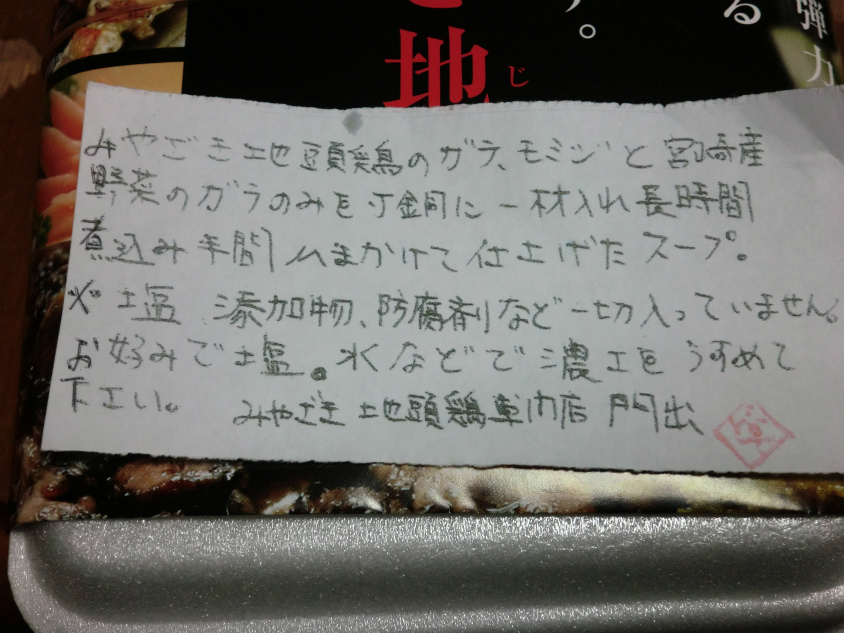 る
す。
弾力
地
じ
みやざき地頭鶏のガラ、モミジと宮崎産
野菜のガラのみを寸銅に一材入れ長時間
煮込み手間ひまかけて仕上げたスープ。
※塩、添加物、防腐剤など一切入っていません。
お好みで塩。水などで濃工をうすめて
下エい。
みやざき地頭鶏専門店 門出